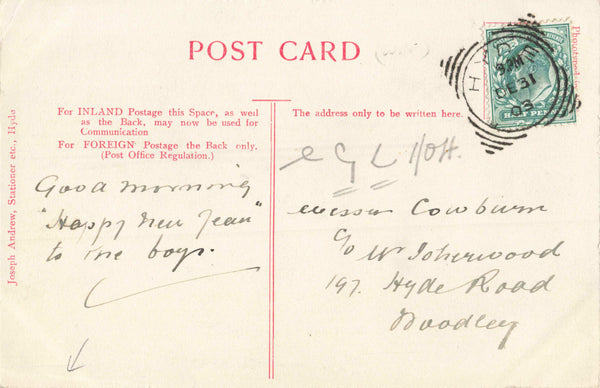 POST CARD
For INLAND Postage this Space, as well
as the Back, may now be used for
Communication
For FOREIGN Postage the Back only.
(Post Office Regulation.)
The address only to be written here.
Joseph Andrew, Stationer etc., Hyde
HYDE
DE 31
03
HALF PENNY
Good morning
"Happy New Year"
to the boys.
Messrs Cowburn
c/o Mr Isherwood
197. Hyde Road
Woodley